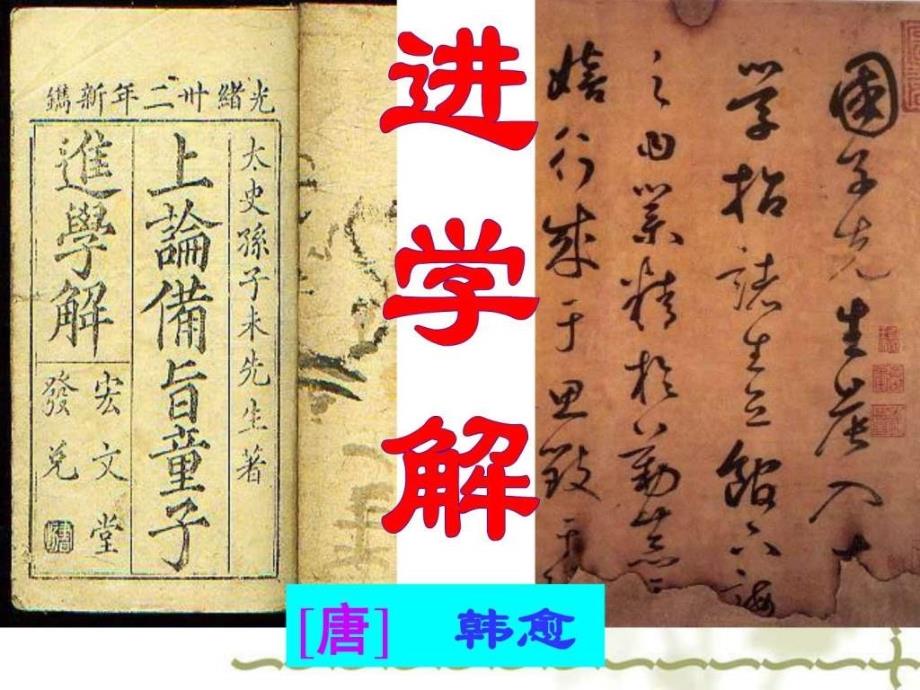 光緒卅二年新鐫
太史孫子未先生著
上論備旨童子
進學解
宏文堂
發兌
进学解
國子先生晨入
學招諸生立館下誨
之曰業精於勤荒
嬉行成于思毀于
[唐] 韩愈